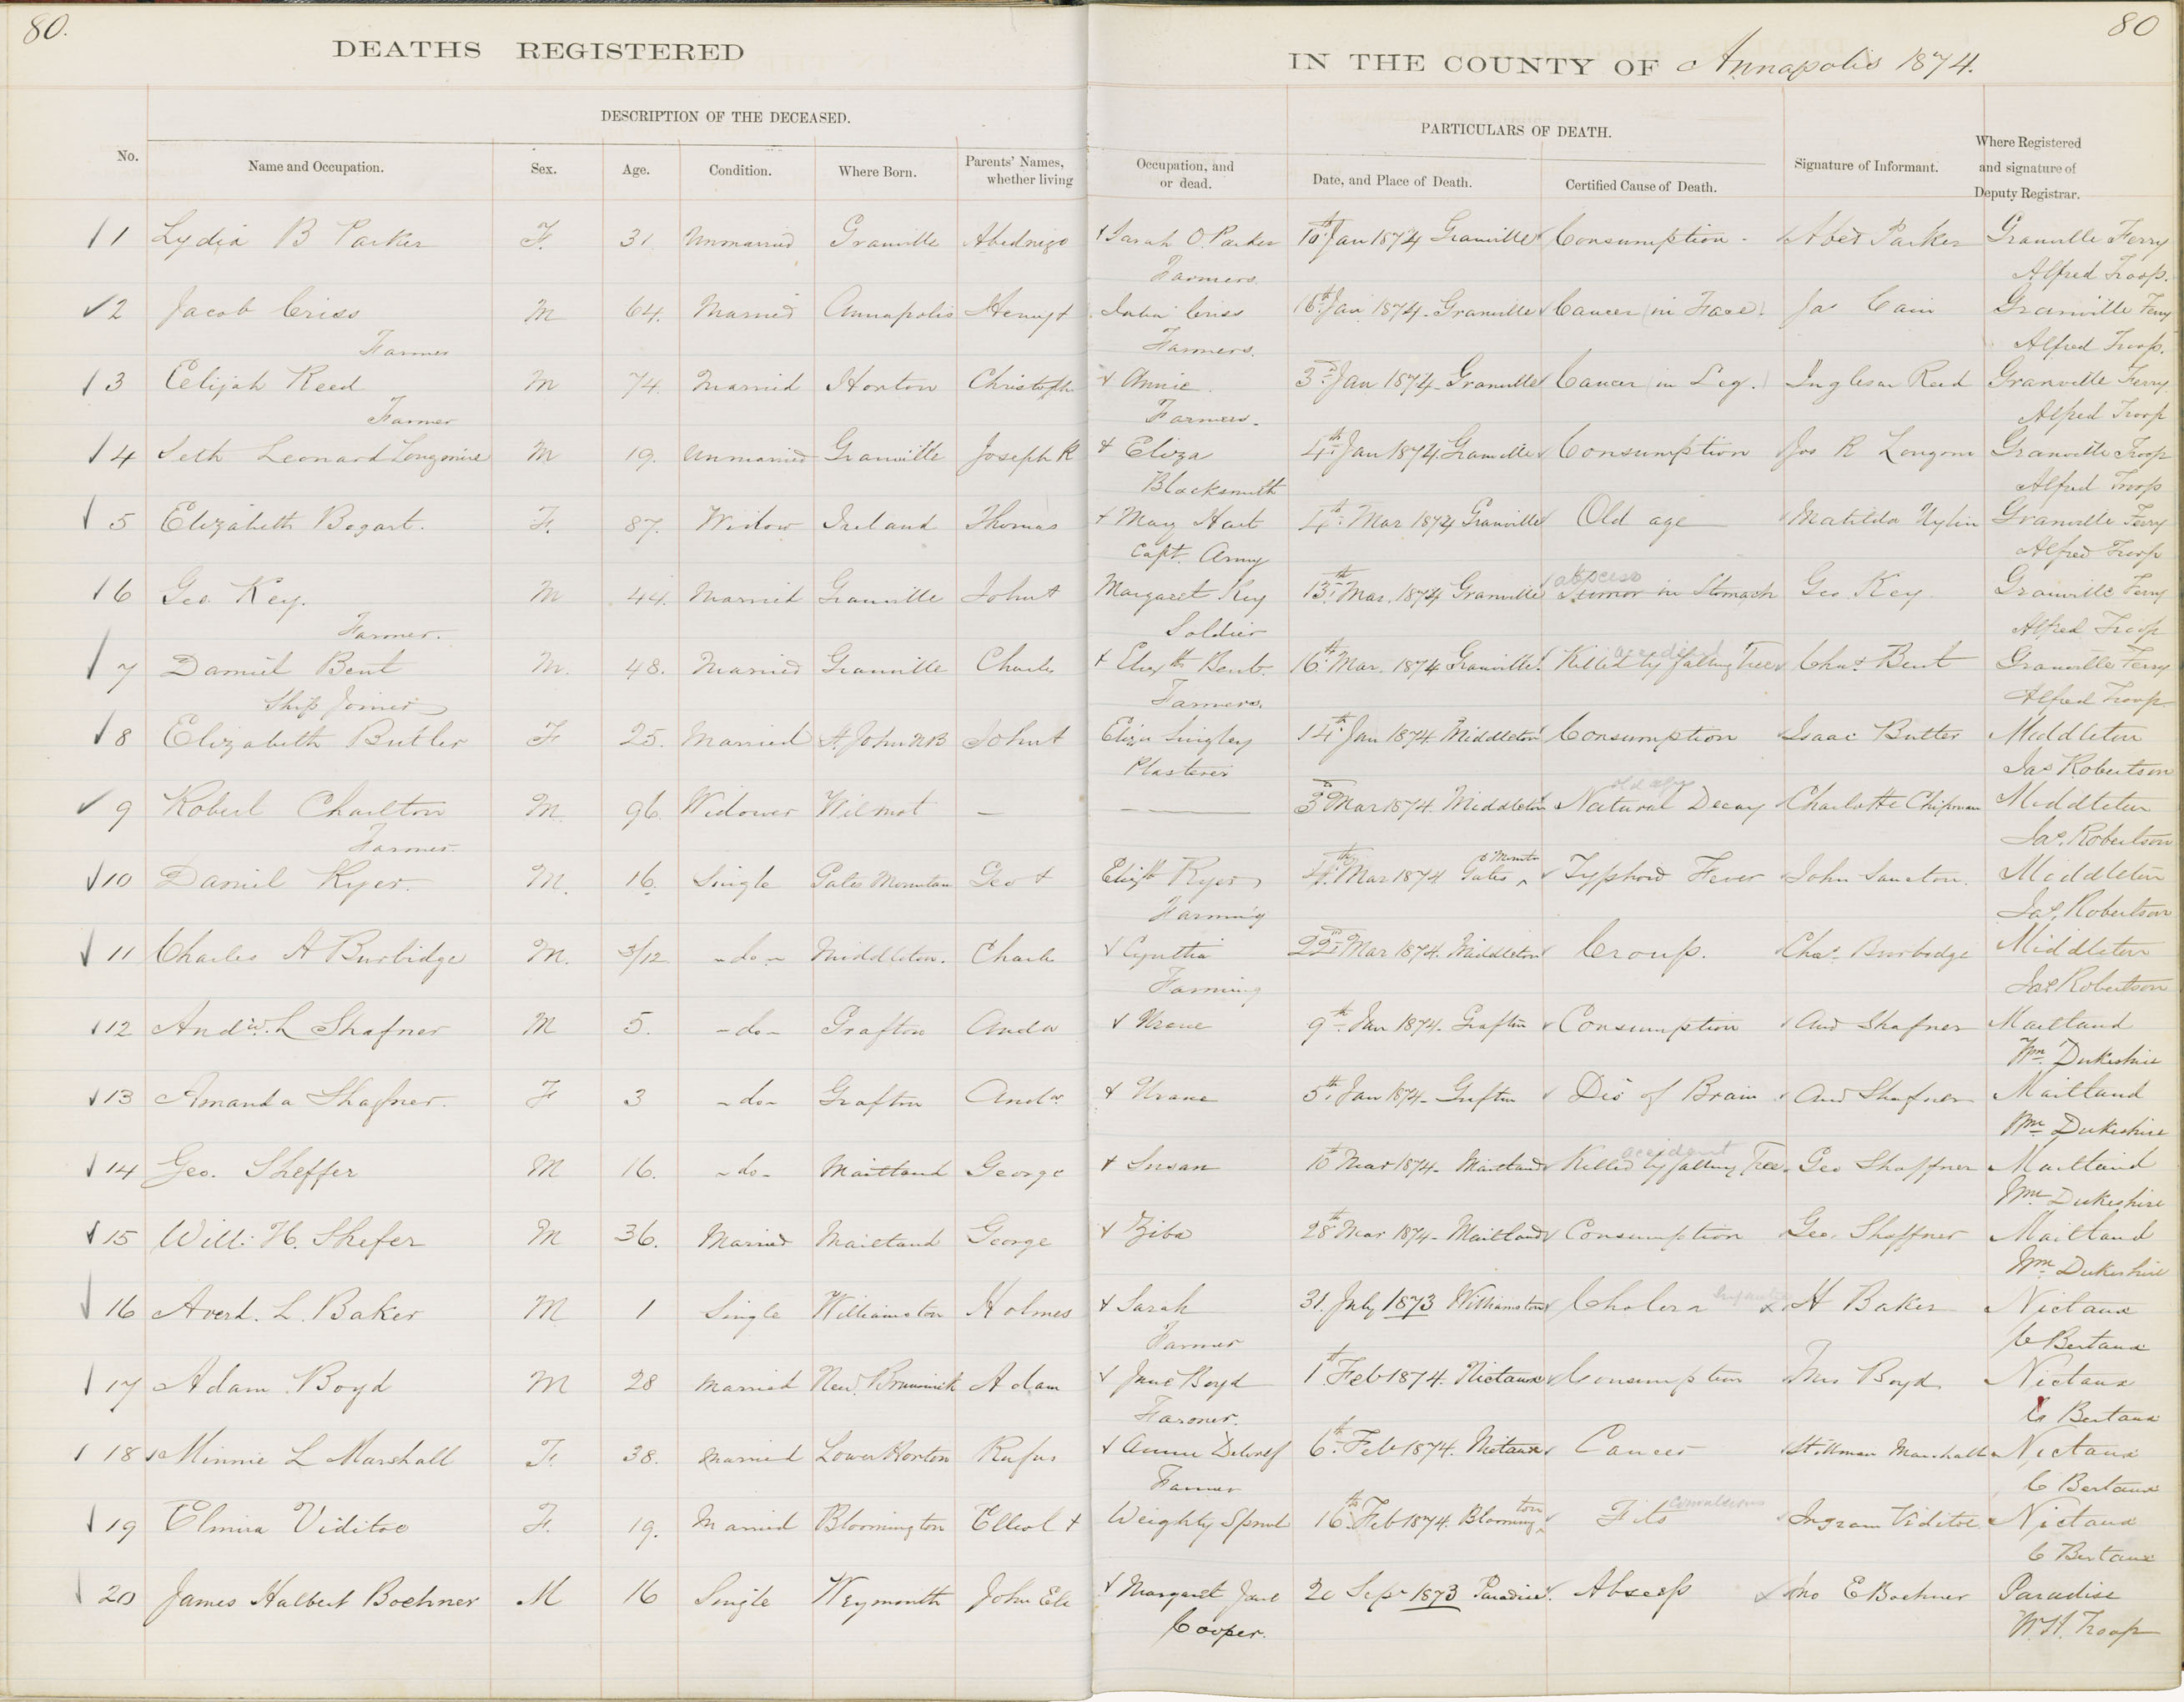 80.
80
DEATHS REGISTERED IN THE COUNTY OF Annapolis 1874.
DESCRIPTION OF THE DECEASED.
PARTICULARS OF DEATH.
No. Name and Occupation. Sex. Age. Condition. Where Born. Parents' Names, whether living Occupation, and or dead. Date, and Place of Death. Certified Cause of Death. Signature of Informant. Where Registered and signature of Deputy Registrar.
1 Lydia B Parker F. 31 Unmarried Granville Abednigo & Sarah O. Parker 10th Jan 1874 Granville Consumption - Abed Parker Granville Ferry
Farmers. Alfred Troop.
2 Jacob Criss M 64. Married Annapolis Henry & Criss 16th Jan 1874 - Granville Cancer (in Face) Jas Cain Granville Ferry
Farmer Farmers. Alfred Troop.
3 Elijah Reed M 74. Married Horton Christoph & Annie. 3rd Jan 1874 - Granville Cancer (in Leg.) Reed Granville Ferry
Farmer Farmers. Alfred Troop
4 Seth Leonard Longmire M 19. Unmarried Granville Joseph R & Eliza 4th Jan 1874. Granville Consumption Jos R Longmi Granville Troop
Blacksmith Alfred Troop
5 Elizabeth Bogart. F. 87. Widow Ireland Thomas & Mary Hart 4th Mar 1874 Granville Old age Matilda Granville Ferry
Capt. Army Alfred Troop
6 Geo. Key. M 44. Married Granville John & Margaret Key 13th Mar. 1874 Granville abscess Tumor in Stomach Geo Key Granville Ferry
Farmer. Soldier Alfred Troop
7 Daniel Bent M. 48. Married Granville Charles & Elizth Bent. 16th Mar. 1874 Granville. accident Killed by falling Tree Chas. Bent Granville Ferry
Ship Joiner Farmers. Alfred Troop
8 Elizabeth Butler F 25. Married St. John NB John & Eliza Lingley 14th Jan 1874. Middleton Consumption Isaac Butler Middleton
Plasterer Jas Robertson
9 Robert Charlton M. 96 Widower Wilmot — — 3rd Mar 1874. Middleton old age Natural Decay Charlotte Chipman Middleton
Farmer. Jas. Robertson
10 Daniel Kyer. M. 16. Single Gates Mountain Geo & Elizth Kyer 4th Mar 1874 Gates Mountn Typhoid Fever John Saunton. Middleton
Farming Jas. Robertson
11 Charles A Burbidge M. 3/12 -do- Middleton. Charls & Cynthia 22nd Mar 1874. Middleton Croup. Chas. Burbodge Middleton
Farming Jas Robertson
12 Andw. L Shafner M 5. -do- Grafton Andw & Urane 9th Jan 1874. Graftin Consumption And Shafner Maitland
Wm Dukeshire
13 Amanda Shafner. F 3 -do- Grafton Andw. & Urane 5th Jan 1874 - Graftin Dis of Brain And Shafner Maitland
Wm Dukeshire
14 Geo. Sheffer M 16. -do- Maitland George & Susan 10 Mar 1874 - Maitland accident Killed by falling Tree Geo Shaffner Maitland
Wm Dukeshire
15 Will: H. Shefer M 36. Married Maitland George & Ziba 28th Mar 1874 - Maitland Consumption Geo. Shaffner Maitland
Wm Dukeshire
16 Averd. L. Baker M 1 Single Williamston Holmes & Sarah 31. July 1873 Williamston Cholera Infantum H Baker Nictaux
Farmer C Bertaux
17 Adam Boyd M 28 Married New. Brunswick Adam & Jane Boyd 1st Feb 1874. Nictaux Consumption Mrs Boyd Nictaux
Farmer. C Bertaux
18 Minnie L Marshall F. 38. Married Lower Horton Rufus & Annie Dewolf 6th Feb 1874. Nictaux Cancer Stillman Marshall Nictaux
Farmer C Bertaux
19 Elmira Viditoe F. 19. Married Bloomington & Weighty 16th Feb 1874. Bloomington Fits Convulsions Ingram Viditoe Nictaux
C Bertaux
20 James Halbert Boehner M 16 Single Weymouth John & Margaret Jane 20 Sepr 1873 Paradise. Abscess Jno E Boehner Paradise
Cooper. W. H. Troop